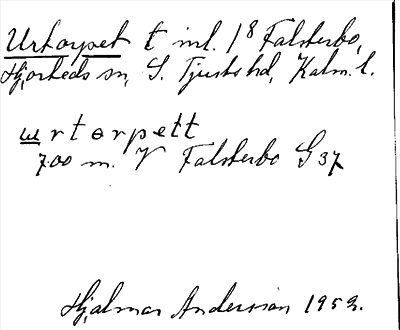 Urtorpet t inl. 1⁸ Falsterbo,
Hjorteds sn, S. Tjusts hd, Kalm. l.
urtorpett
700 m. V Falsterbo G 37
Hjalmar Andersson 1953.